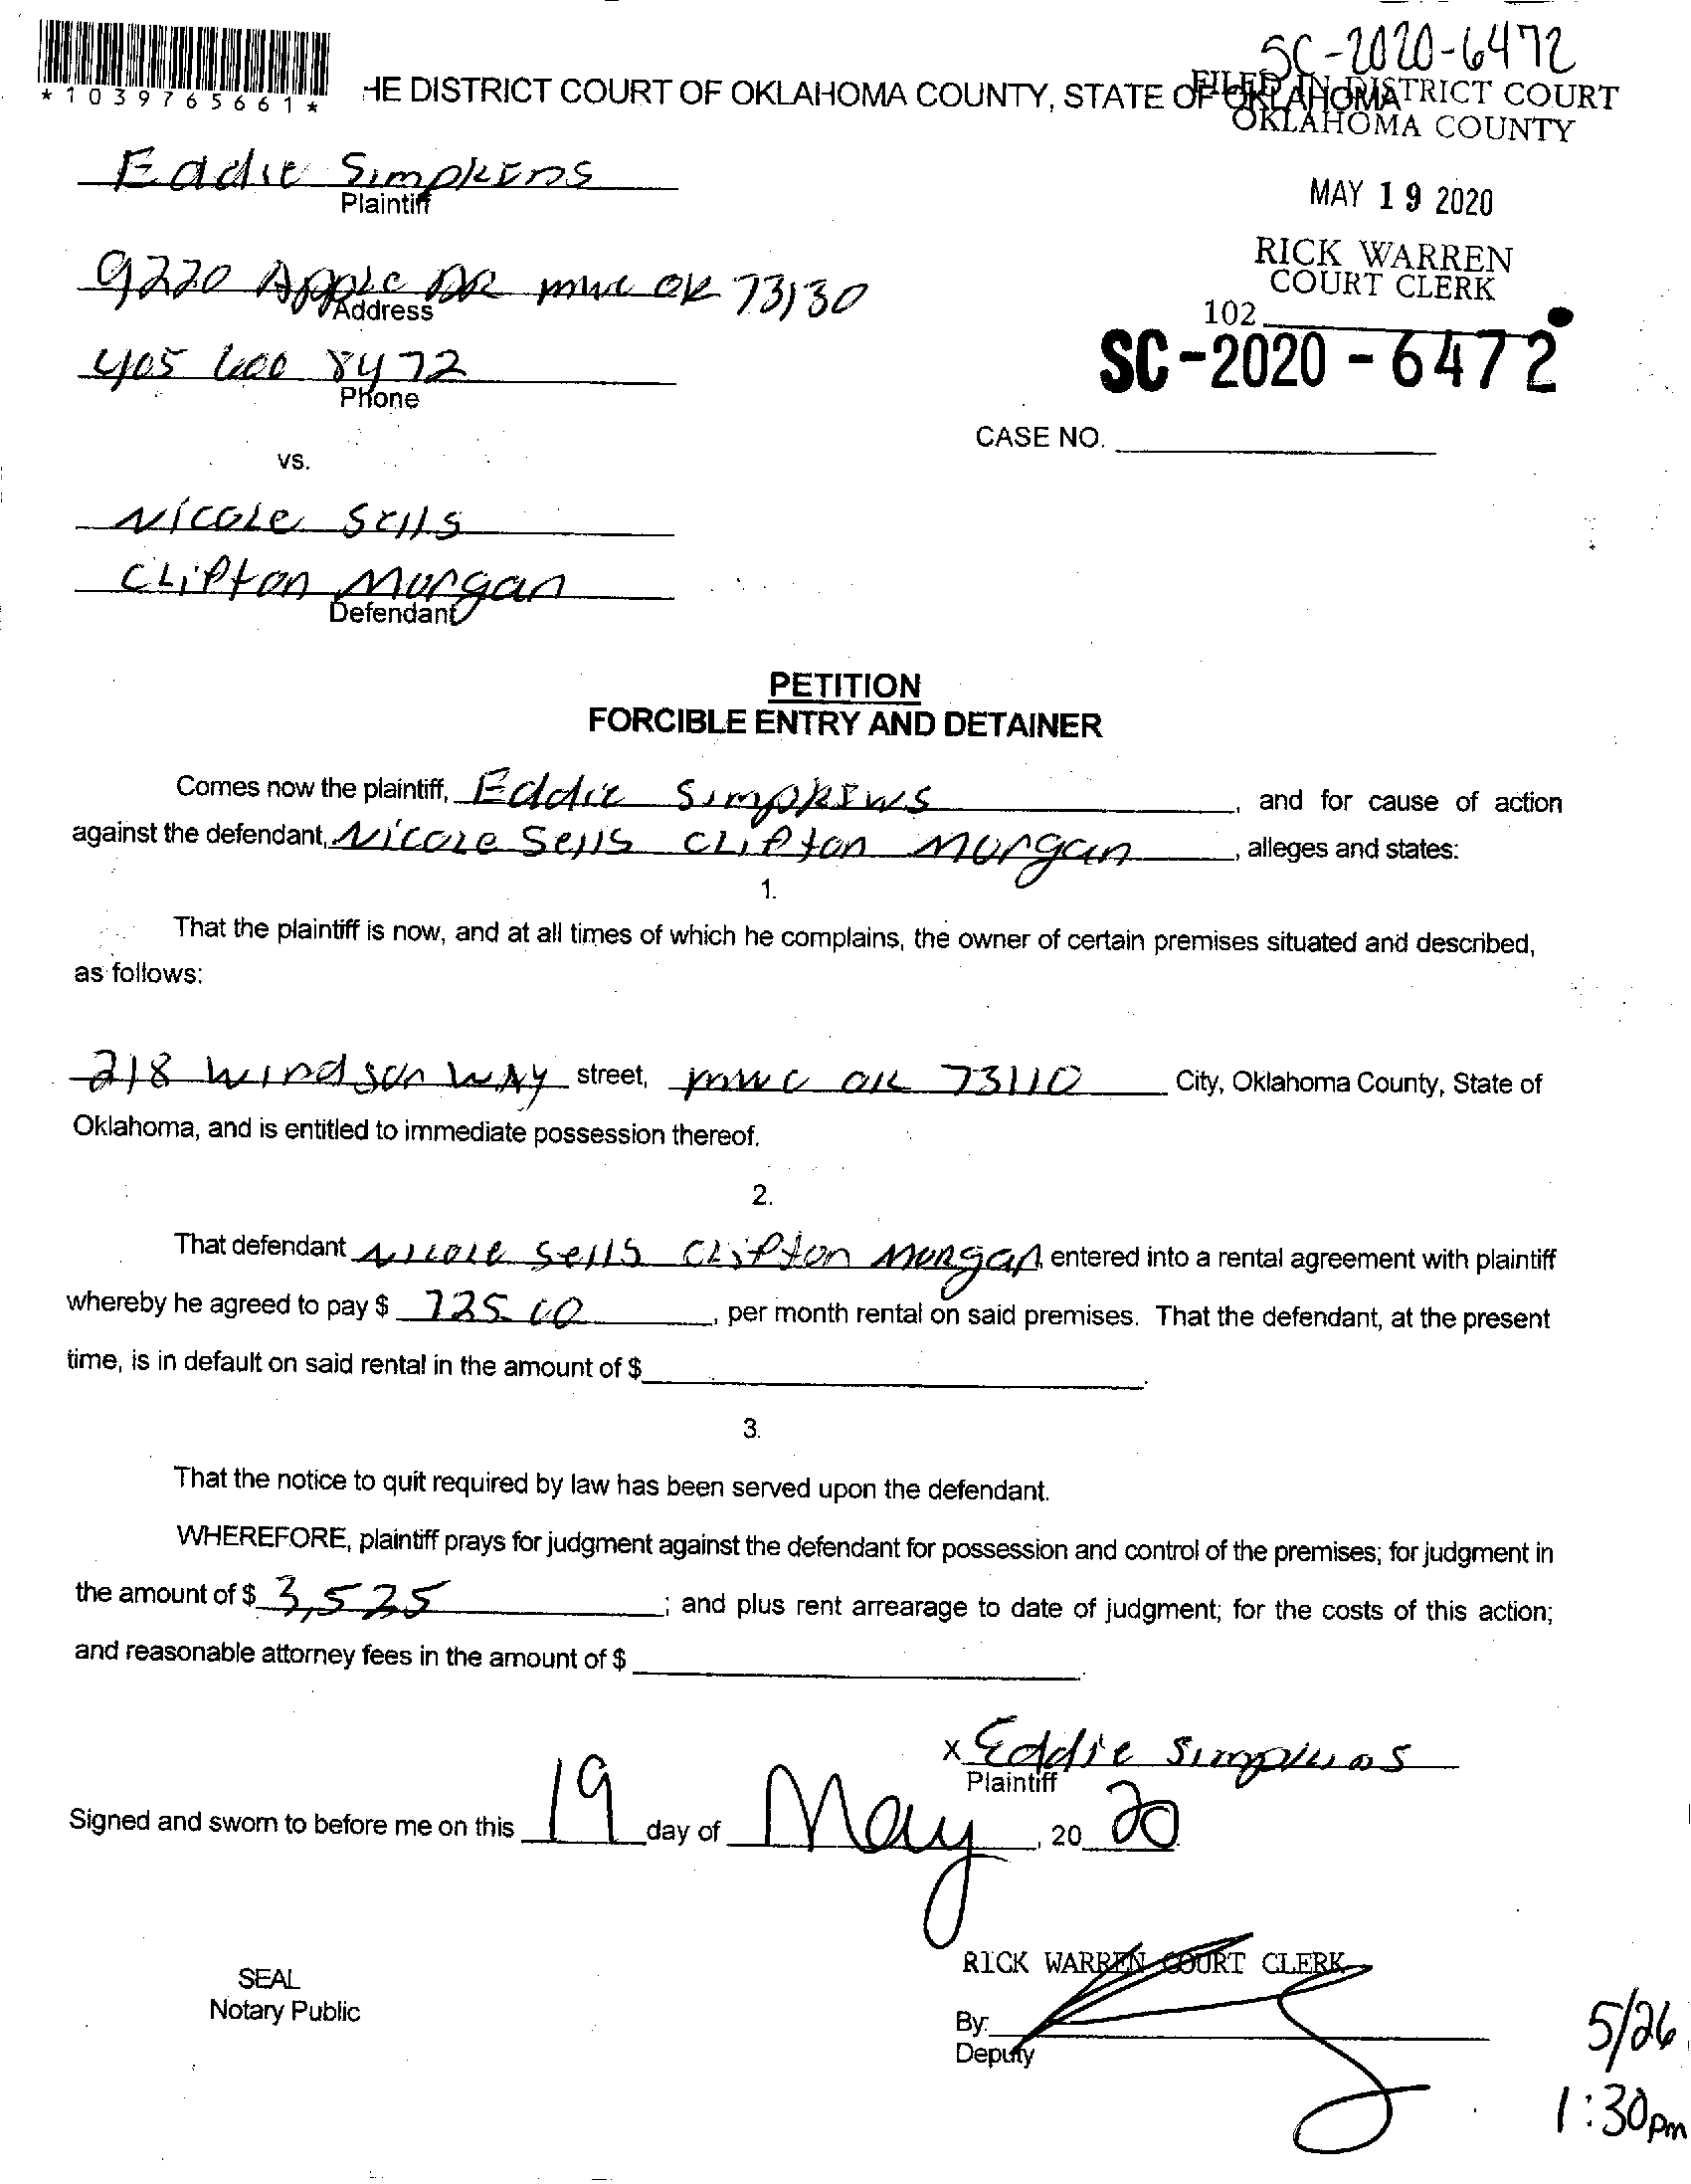 SC-2020-6472
*1039765661*
HE DISTRICT COURT OF OKLAHOMA COUNTY, STATE OF OKLAHOMA
FILED IN DISTRICT COURT
OKLAHOMA COUNTY
Eddie Simpkins
Plaintiff
MAY 19 2020
9220 Apple DR mwc OK 73130
Address
RICK WARREN
COURT CLERK
102
405 600 8472
Phone
SC-2020-6472
CASE NO.
vs.
Nicole Sells
Clifton Morgan
Defendant
PETITION
FORCIBLE ENTRY AND DETAINER
Comes now the plaintiff, Eddie Simpkins, and for cause of action
against the defendant, Nicole Sells Clifton Morgan, alleges and states:
1.
That the plaintiff is now, and at all times of which he complains, the owner of certain premises situated and described,
as follows:
218 Windsor WAY street, mwc OK 73110 City, Oklahoma County, State of
Oklahoma, and is entitled to immediate possession thereof.
2.
That defendant Nicole Sells Clifton Morgan entered into a rental agreement with plaintiff
whereby he agreed to pay $ 725.00, per month rental on said premises. That the defendant, at the present
time, is in default on said rental in the amount of $ .
3.
That the notice to quit required by law has been served upon the defendant.
WHEREFORE, plaintiff prays for judgment against the defendant for possession and control of the premises; for judgment in
the amount of $ 3,525; and plus rent arrearage to date of judgment; for the costs of this action;
and reasonable attorney fees in the amount of $ .
x Eddie Simpkins
Plaintiff
Signed and sworn to before me on this 19 day of May, 2020.
RICK WARREN COURT CLERK
SEAL
Notary Public
By:
Deputy
5/26
1:30pm